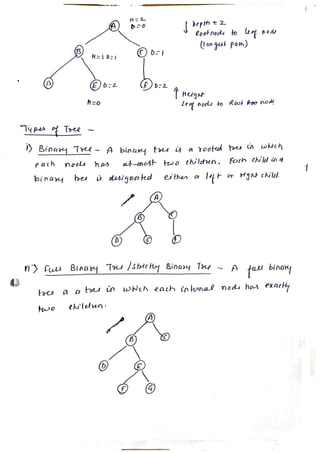 H=2
D=0
A
↓ Depth = 2
Root node to leaf node
(longest path)
B H=1 D=1 C D=1
D E D=2 F D=2
H=0
↑ Height
leaf node to Root node
Types of Tree -
i) Binary Tree - A binary tree is a rooted tree in which
each node has at-most two children. Each child in a
binary tree is designated either a left or right child.
A
B C
D E F
ii) Full Binary Tree / Strictly Binary Tree - A full binary
tree is a tree in which each internal node has exactly
two children.
A
B C
D E
F G